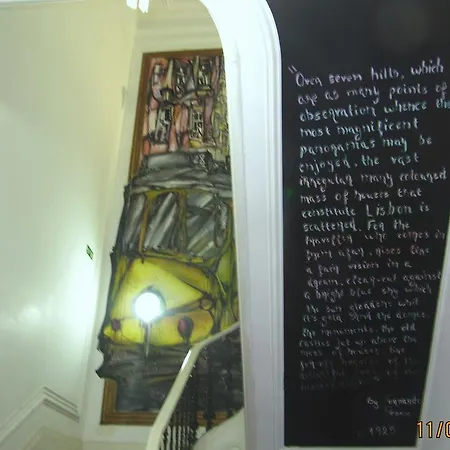 "Over seven hills, which
are as many points of
observation whence the
most magnificent
panoramas may be
enjoyed, the vast
irregular many coloured
mass of houses that
constitute Lisbon is
scattered. For the
traveller who comes in
from afar, rises like
a fair vision in a
dream, clear-cut against
a bright blue sky which
the sun gladdens with
it's gold. And the domes,
the monuments, the old
castles jut up above the
mass of houses, like
of
of the
By Fernando
1925
11/0